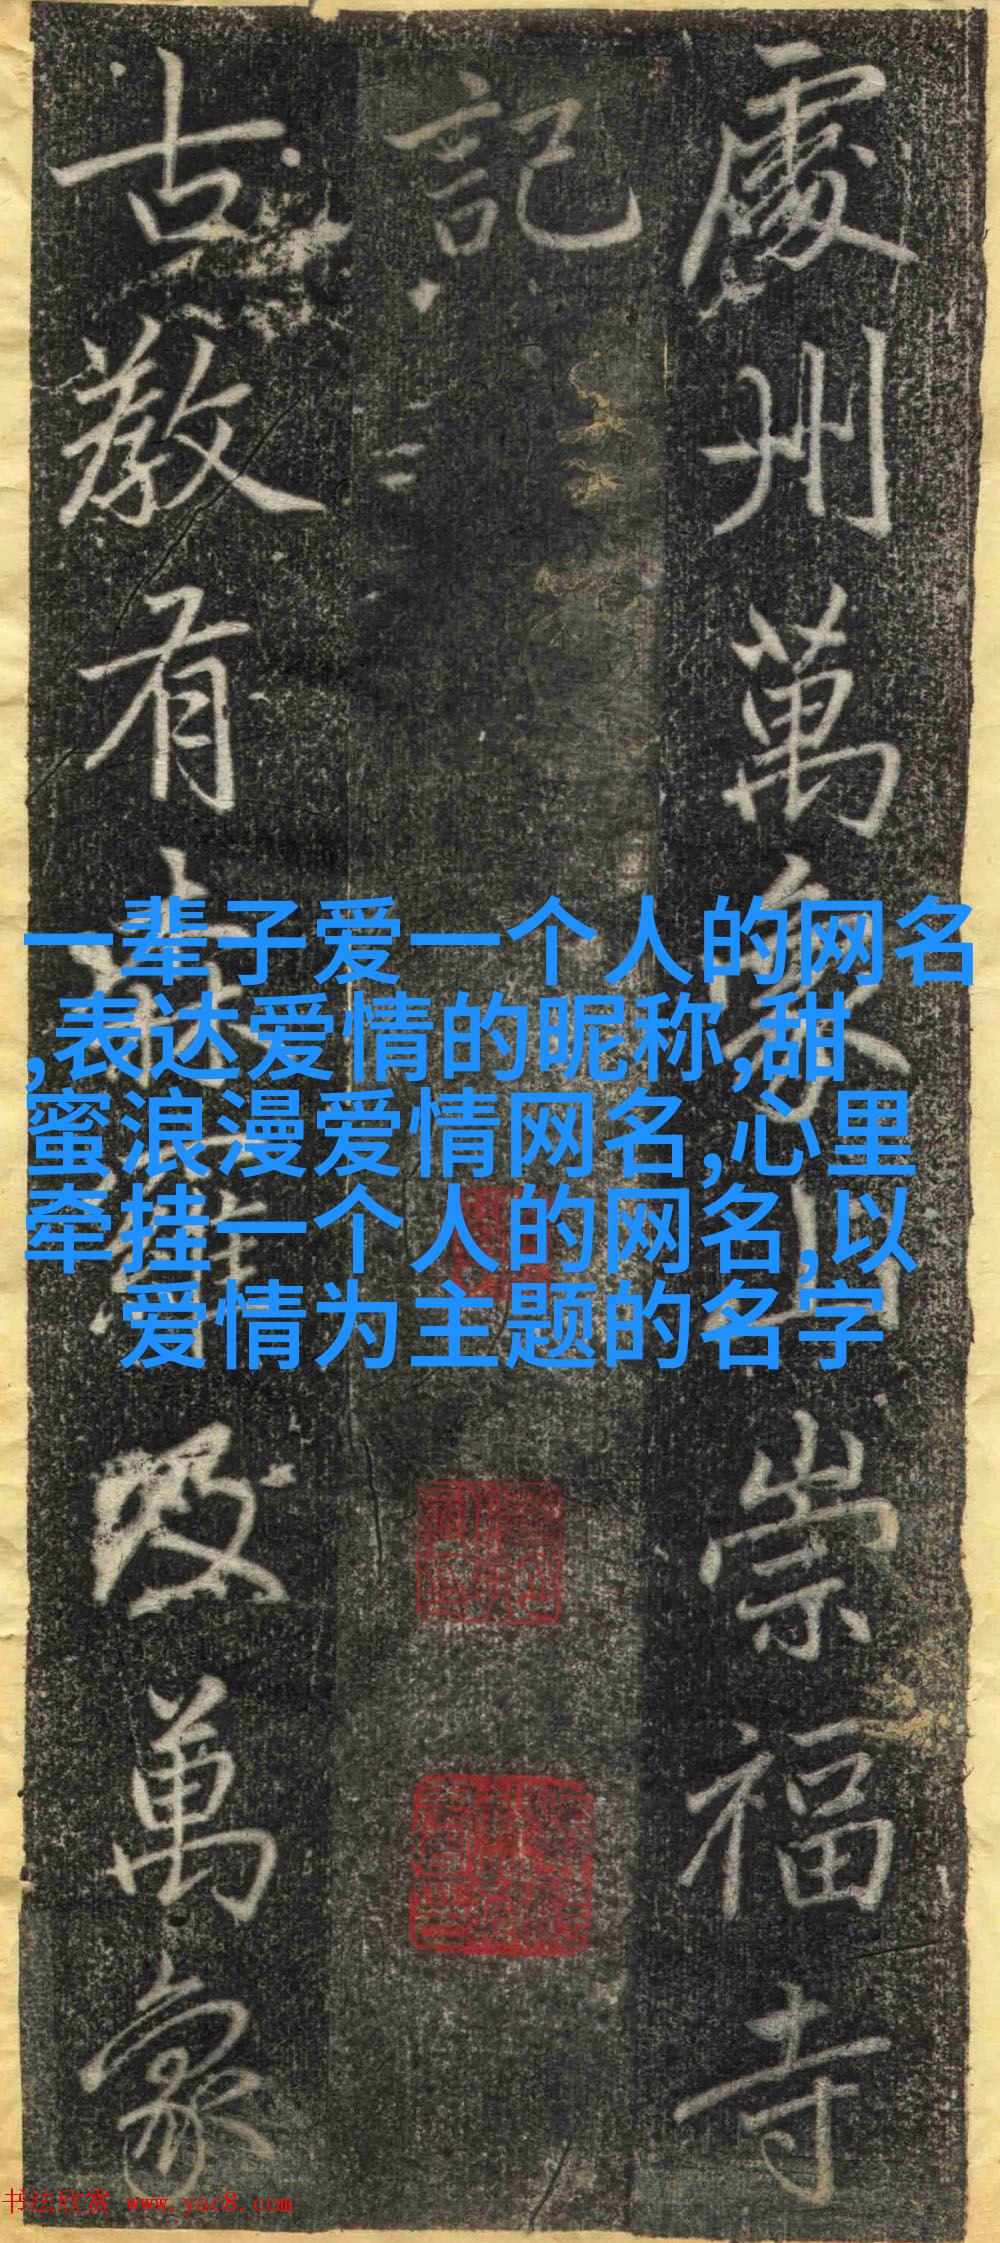 處州萬象山崇福寺
記
古教有森羅及萬象
一辈子爱一个人的网名
,表达爱情的昵称,甜
蜜浪漫爱情网名,心里
牵挂一个人的网名,以
爱情为主题的名字
书法欣赏 www.yac8.com